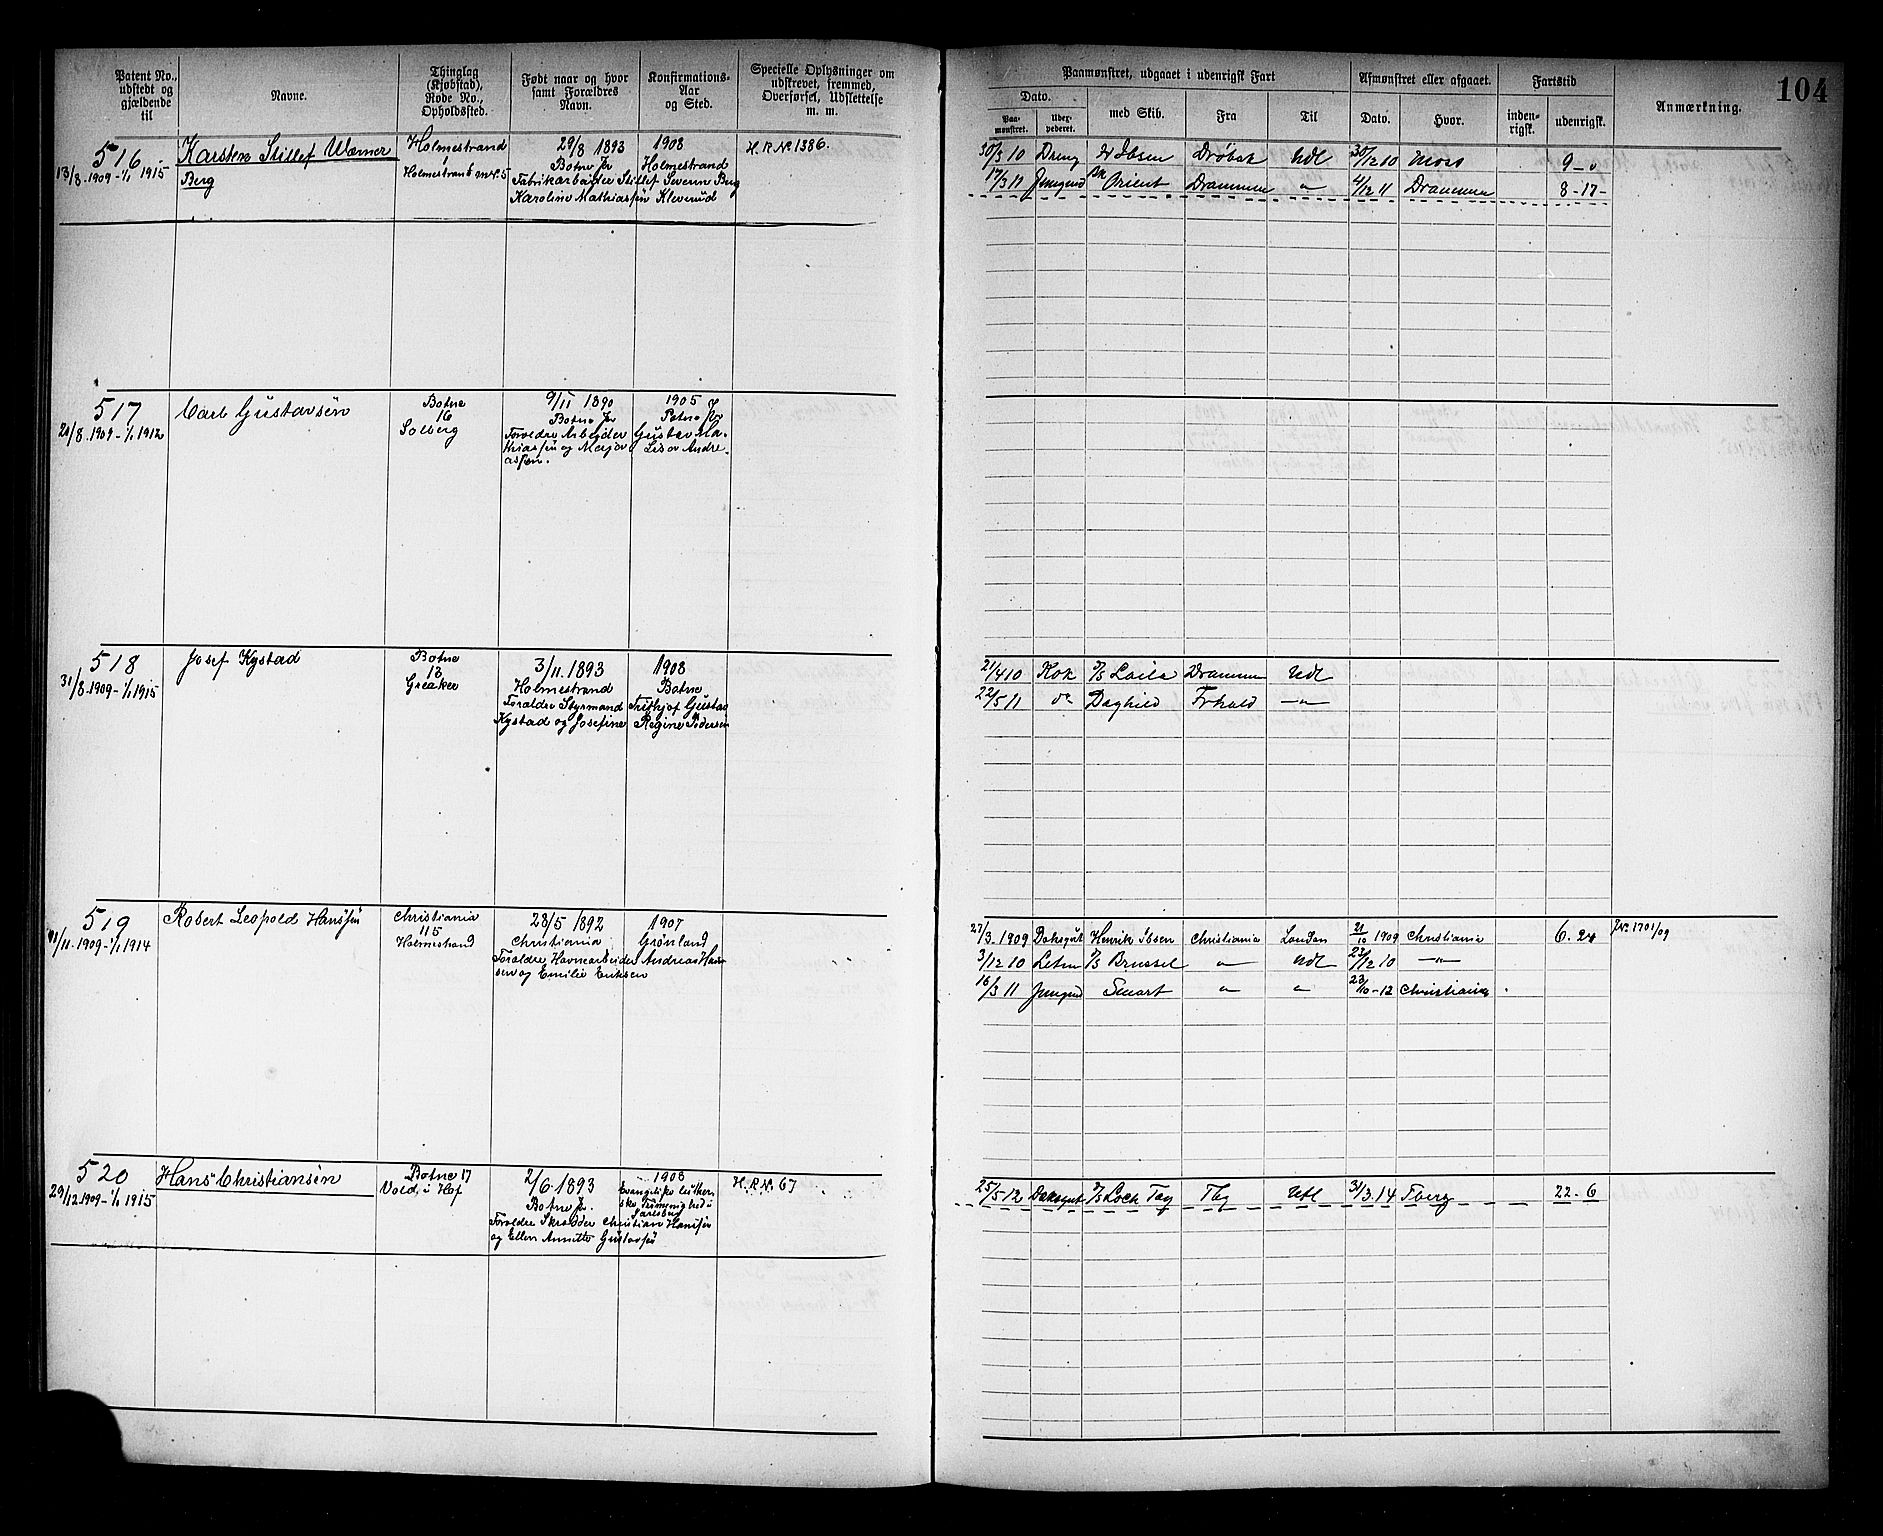 Patent No., udstedt og gjældende til
Navne.
Thinglag (Kjøbstad), Rode No., Opholdssted.
Født naar og hvor samt Forældres Navn.
Konfirmations-Aar og Sted.
Specielle Oplysninger om udstrevet, fremmed, Overførsel, Udslettelse m. m.
Paamønstret, udgaaet i udenrigsk Fart
Afmønstret eller afgaaet.
Fartstid
Anmærkning.
104
Dato.
Paa-mønstret.
med Skib.
Fra
Til
Dato.
Hvor.
inden-rigsk.
udenrigsk.
516
13/8.1909-1/1 1915
Karsten Stillef Werner
Berg
Holmestrand
Holmestrand m.v.5
29/8 1893
Botne Js
Fabrikarbeider Stillef Severin Berg
Karoline Mathiassen Kleverud
1908
Holmestrand
H.R.No.1386.
30/3 10 Dreng Ibsen Drøbak Udl 30/12 10 Moss 9-0
17/3 11 Jungmd Orient Drammen " 4/12 11 Drammen 8-17-
517
20/8.1909-1/1 1912
Carl Gustavsen
Botne
16
Solberg
9/11 1890
Botne Js
Foreldre Arbeider Gustav Ma-
thiassen og Major Lisov Andre-
assen.
1905
Botne
518
31/8.1909-1/1 1915
Josef Kystad
Botne
13
Greaker
3/11.1893
Holmestrand
Foraldre Styrmand Trithjof Gustav
Kystad og Josefine Regine Pedersen
1908
Botne
21/4 10 Kok Laila Drammen Udl
22/5 11 do Daghild Frhald -"-
519
11/11.1909-1/1 1914
Robert Leopold Hanssen
Christiania
115
Holmestrand
28/5 1892
Christiania
Foraldre Havnearbeider Andreas Han-
sen og Emilie Eriksen
1907
Grønland
27/3.1909 Daksgut Henrik Ibsen Christiania London 21/10 1909 Christiania 6.24 JNo.1701/09
3/12 10 Letm D/S Brussel " Udl 23/12 10 -"-
16/3 11 Jungmd Smart " " 23/10-12 Christiania
520
29/12.1909-1/1 1915
Hans Christiansen
Botne 17
Vold i Hof
2/6.1893
Botne Js.
Foraldre Skrædder Christian Hansen
og Ellen Annette Gustavsen
1908
Evangelisk luther-
ske Frimenighed i
Jarlsberg
H.R.No.67
25/5 12 Daksgut D/S Lock Tay Tbg Utl 31/3.14 Tberg 22-6